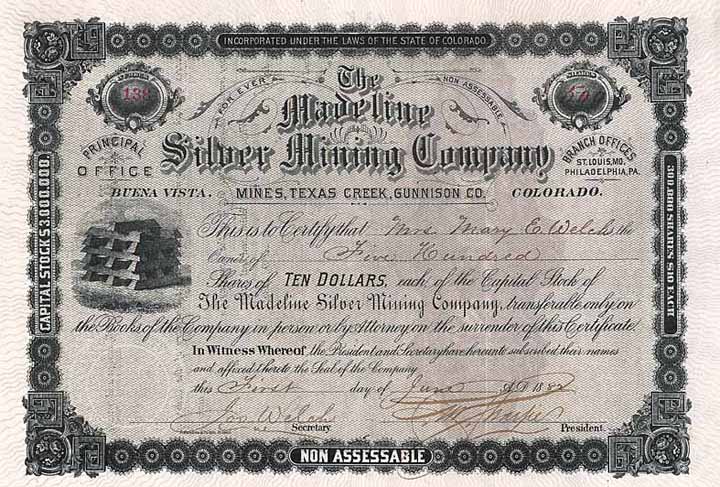 INCORPORATED UNDER THE LAWS OF THE STATE OF COLORADO.
NUMBER
138
SHARES
FOR EVER
NON ASSESSABLE
The
Madeline
Silver Mining Company
PRINCIPAL
OFFICE
BUENA VISTA.
MINES, TEXAS CREEK, GUNNISON CO.
BRANCH OFFICES
ST. LOUIS, MO.
PHILADELPHIA, PA.
COLORADO.
CAPITAL STOCK $3,000,000.
300,000 SHARES $10 EACH
This is to Certify that Mrs. Mary E. Welch the
Owner of Five Hundred
Shares of TEN DOLLARS, each, of the Capital Stock of
The Madeline Silver Mining Company, transferable only on
the Books of the Company in person or by Attorney on the surrender of this Certificate.
In Witness Whereof, the President and Secretary have hereunto subscribed their names
and affixed thereto the Seal of the Company
this First day of June A.D. 1882
Welch
Secretary
President.
NON ASSESSABLE